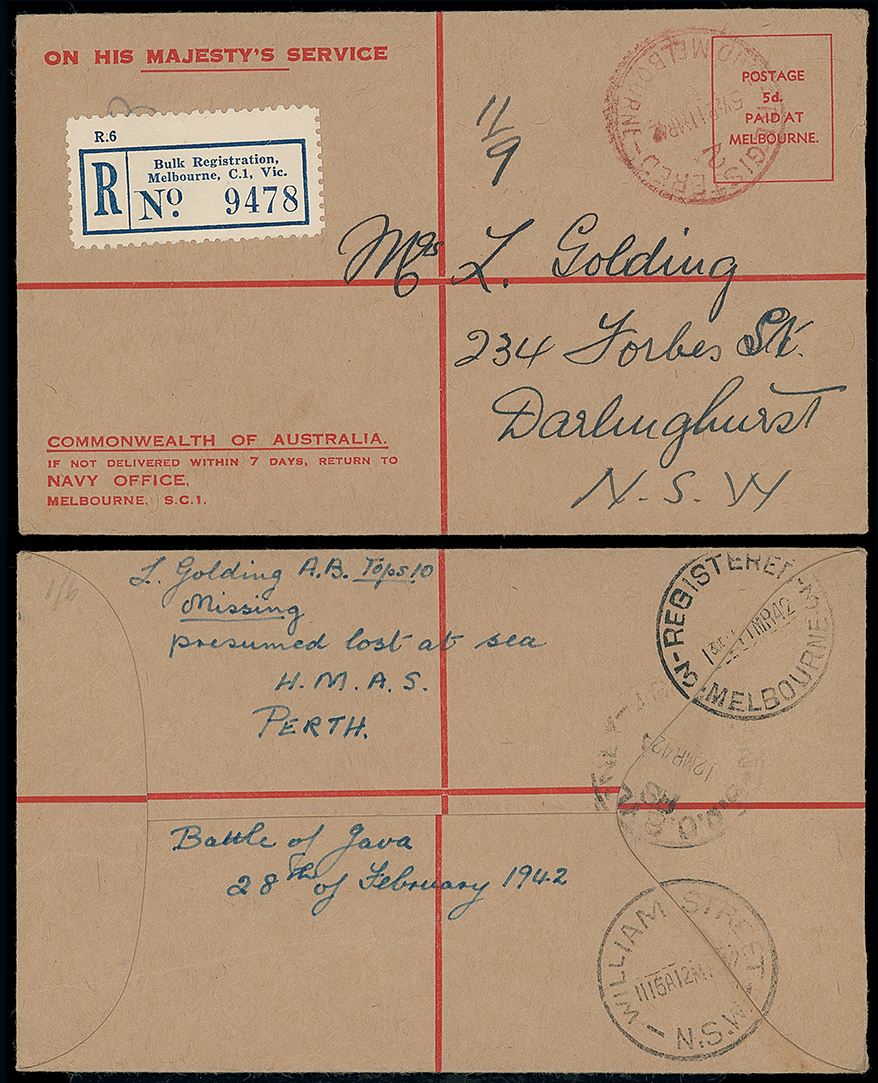 ON HIS MAJESTY'S SERVICE
R.6
R
Bulk Registration,
Melbourne, C.1, Vic.
No. 9478
11/9
REGISTERED
MELBOURNE
2
11MR42
POSTAGE
5d.
PAID AT
MELBOURNE.
Mrs L. Golding
234 Forbes St.
Darlinghurst
N.S.W
COMMONWEALTH OF AUSTRALIA.
IF NOT DELIVERED WITHIN 7 DAYS, RETURN TO
NAVY OFFICE,
MELBOURNE, S.C.1.
1/6
L. Golding A.B. Tops 10
Missing
presumed lost at sea
H.M.A.S.
PERTH.
Battle of Java
28th of February 1942
3-REGISTERED-3
11MR42
MELBOURNE
12MR42
WILLIAM STREET
1115A12M
N.S.W